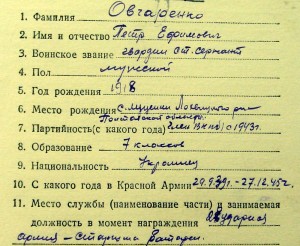 1. Фамилия Овчаренко
2. Имя и отчество Петр Ефимович
3. Воинское звание гвардии ст. сержант
4. Пол мужской
5. Год рождения 1918
6. Место рождения с. Луценки Лохвицкого р-н
Полтавской области
7. Партийность (с какого года) член ВКП(б) с 1943 г.
8. Образование 7 классов
9. Национальность Украинец
10. С какого года в Красной Армии 29.9.39г. - 27.12.45г.
11. Место службы (наименование части) и занимаемая
должность в момент награждения ударная
армия - Старшина батареи